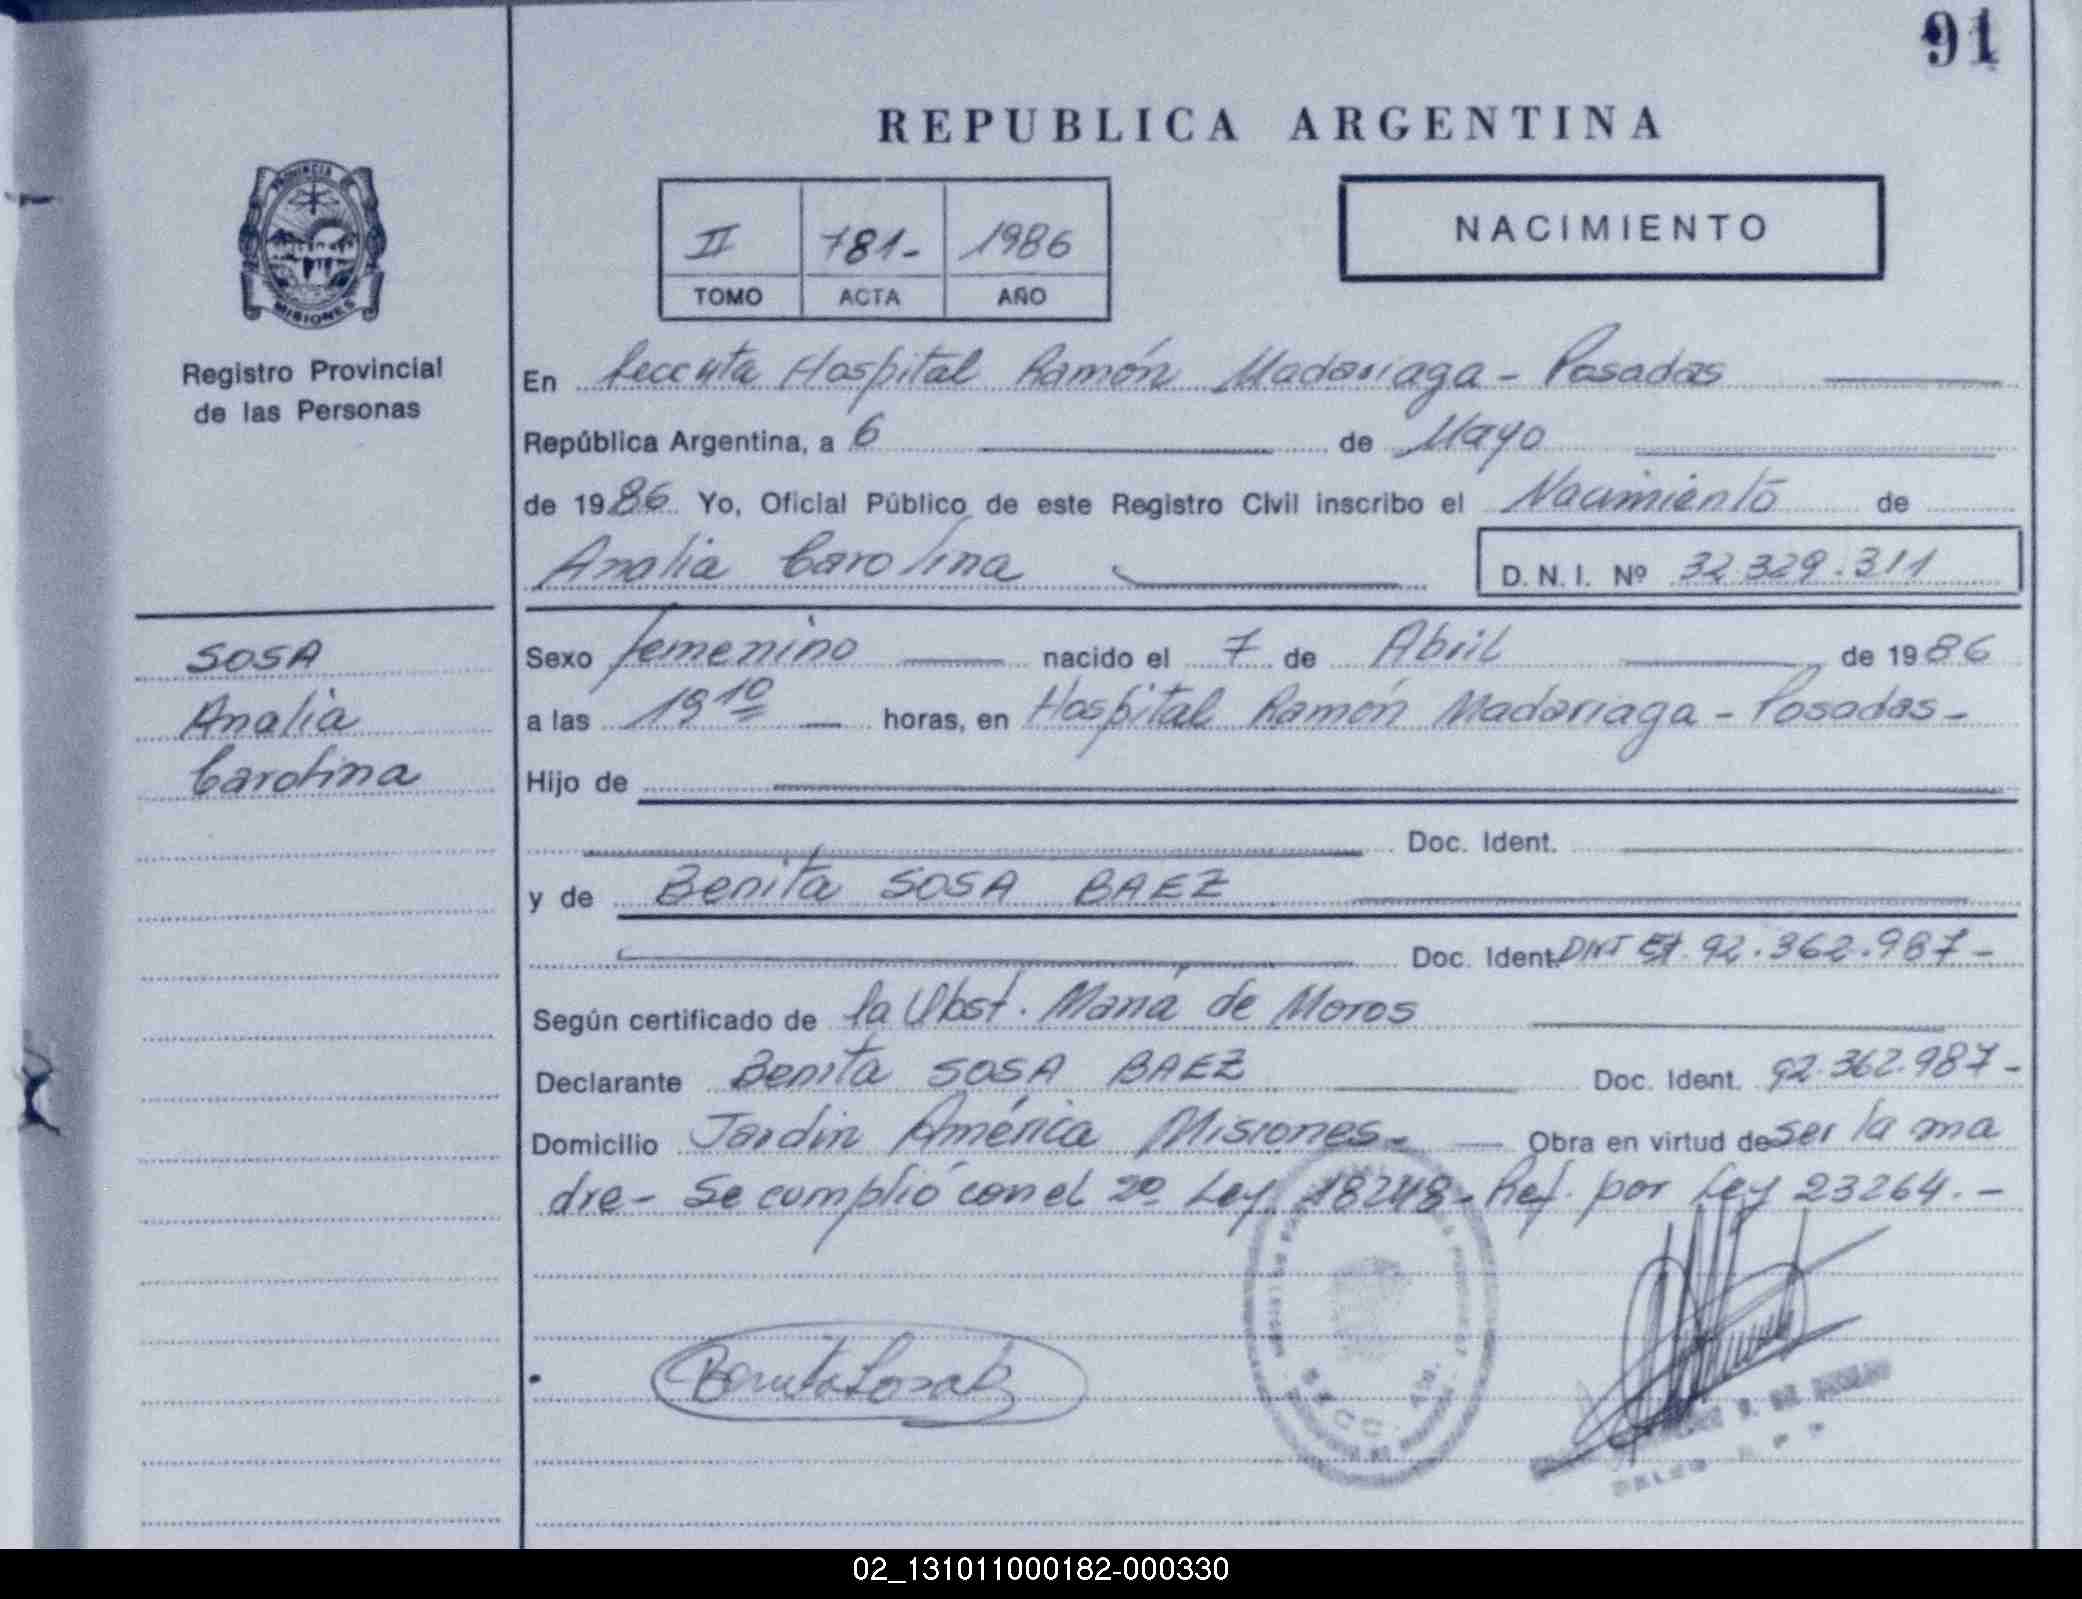 91
REPUBLICA ARGENTINA
PROVINCIA DE
MISIONES
Registro Provincial
de las Personas
II 781- 1986
TOMO ACTA AÑO
NACIMIENTO
En Hospital Ramón Madariaga - Posadas
República Argentina, a 6 de Mayo
de 1986 Yo, Oficial Público de este Registro Civil inscribo el Nacimiento de
Analia Carolina D. N. I. Nº 32.329.311
SOSA
Analia
Carolina
Sexo femenino nacido el 7 de Abril de 1986
a las 19 10 horas, en Hospital Ramón Madariaga - Posadas -
Hijo de
Doc. Ident.
y de Benita SOSA BAEZ
Doc. Ident. DNI Et. 92.362.987 -
Según certificado de la Obst. María de Moros
Declarante Benita SOSA BAEZ Doc. Ident. 92.362.987 -
Domicilio Jardin América Misiones - Obra en virtud de ser la ma
dre - Se cumplió con el 2º Ley 18248 - Ref. por Ley 23264. -
Benita Sosa B
02_131011000182-000330